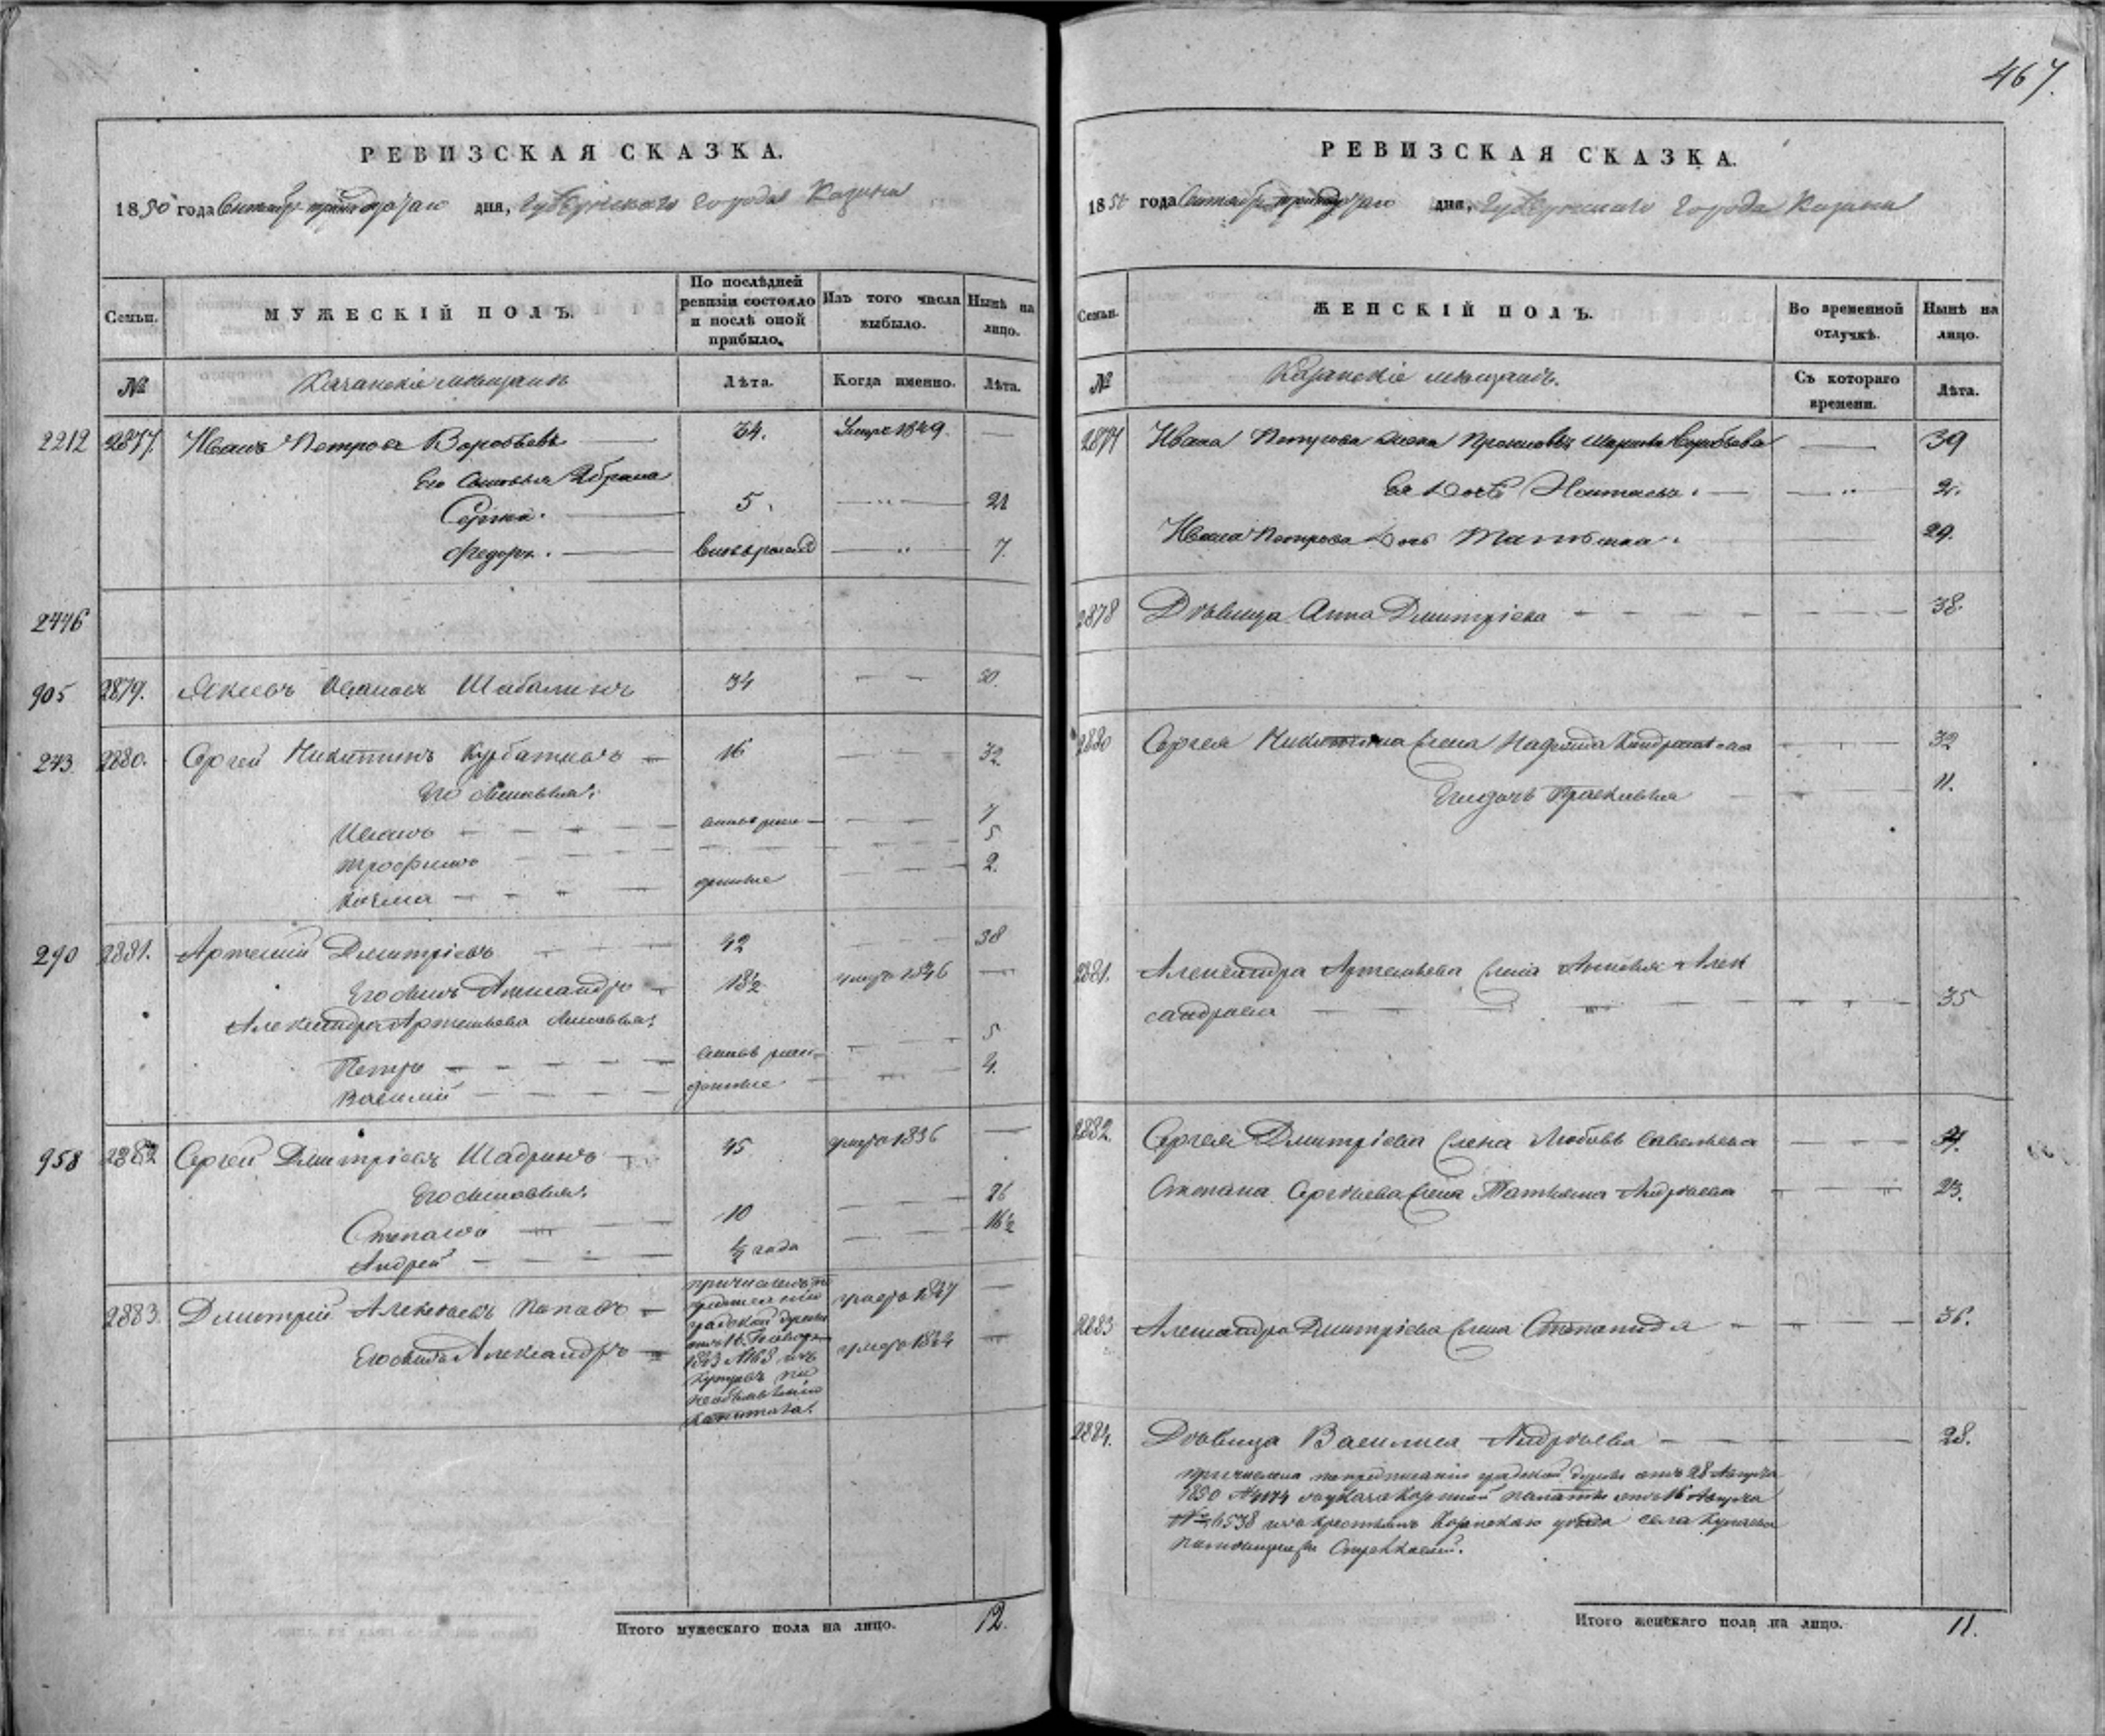 467.
РЕВИЗСКАЯ СКАЗКА.
1850 года Сентября дня, Губернскаго города Казани
Семьи. МУЖЕСКІЙ ПОЛЪ. По послѣдней ревизіи состояло и послѣ оной прибыло. Изъ того числа выбыло. Нынѣ на лицо.
№ Казанскіе мѣщане Лѣта. Когда именно. Лѣта.
2212 2877. Иванъ Петровъ Воробьевъ 34. 1849 —
Его сыновья
Сергей. 5 21
Федоръ. вновьрожд 7.
2446
905 2879. Яковъ Ивановъ Шабалинъ 34 50.
243 2880. Сергей Никитинъ Курбатовъ 16 32
Его сыновья:
Иванъ вновь рож 7
Трофимъ 5
Козма денные 2.
290 2881. Артемий Дмитріевъ 42 58
Его сынъ Александръ 18½ умеръ 1846 —
Александра Артемьева сыновья:
Петръ вновь рож 5
Василий денные 4.
958 2882 Сергей Дмитріевъ Шадринъ 45 умеръ 1836 —
Его сыновья:
Степанъ 10 26
Андрей ½ года 16½
2883. Дмитрий Алексѣевъ Поповъ умеръ 1847 —
Его сынъ Александръ умеръ 1844 —
причисленъ по
предписанію
градской думы
1843 №163 изъ
купцовъ по
необъявленію
капитала.
Итого мужескаго пола на лицо. 12.
РЕВИЗСКАЯ СКАЗКА.
1850 года Сентября дня, Губернскаго города Казани
Семьи. ЖЕНСКІЙ ПОЛЪ. Во временной отлучкѣ. Нынѣ на лицо.
№ Казанскіе мѣщане. Съ котораго времени. Лѣта.
2877 Ивана Петрова жена Воробьева 39
Ея дочь Настасья. 2.
Ивана Петрова дочь Татьяна. 29.
2878 Дѣвица Анна Дмитріева 38.
2880 Сергея Никитина жена Надежда Кондратьева 32
Его дочь Прасковья 11.
2881. Александра Артемьева жена Алек
сандрова 35
2882. Сергея Дмитріева жена Любовь Савельева
Степана Сергѣева жена Татьяна Андрѣева 23.
2883 Александра Дмитріева жена Степанида 36.
2884. Дѣвица Василиса Андрѣева 28.
причислена по предписанію градской думы отъ 28 Августа
1850 №4174 и указа Казенной палаты отъ 16 Августа
изъ крестьянъ Казанскаго уѣзда села
Итого женскаго пола на лицо. 11.